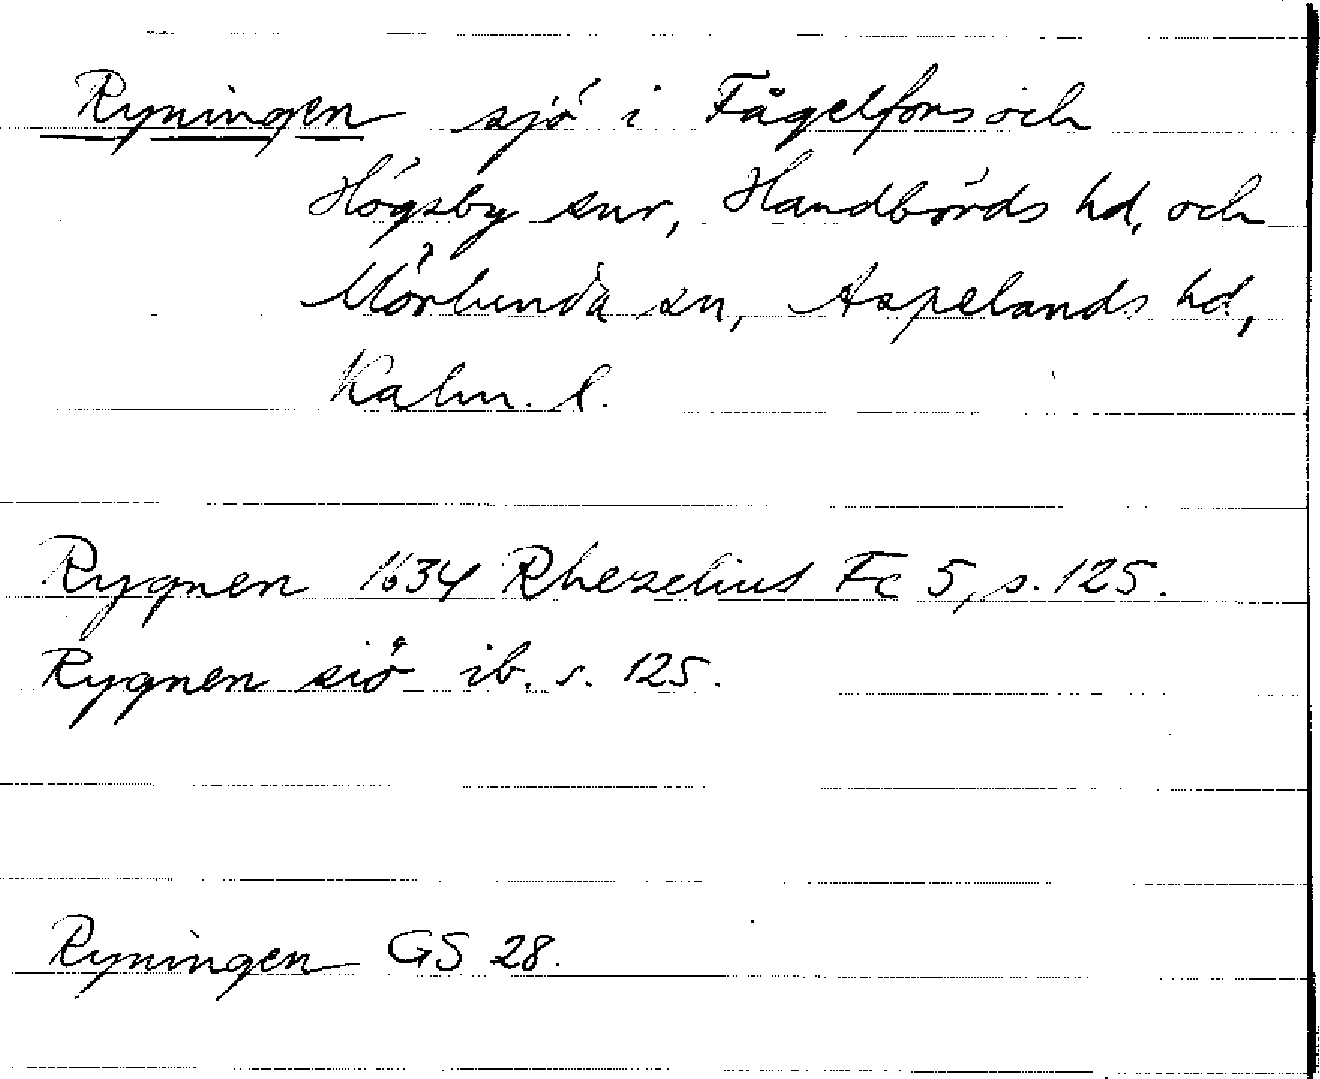 Ryningen sjö i Fågelfors och
Högsby snr, Handbörds hd, och
Mörlunda sn, Aspelands hd,
Kalm. l.
Rygnen 1634 Rhezelius Fc 5, s. 125.
Rygnen siö ib. s. 125.
Ryningen GS 28.